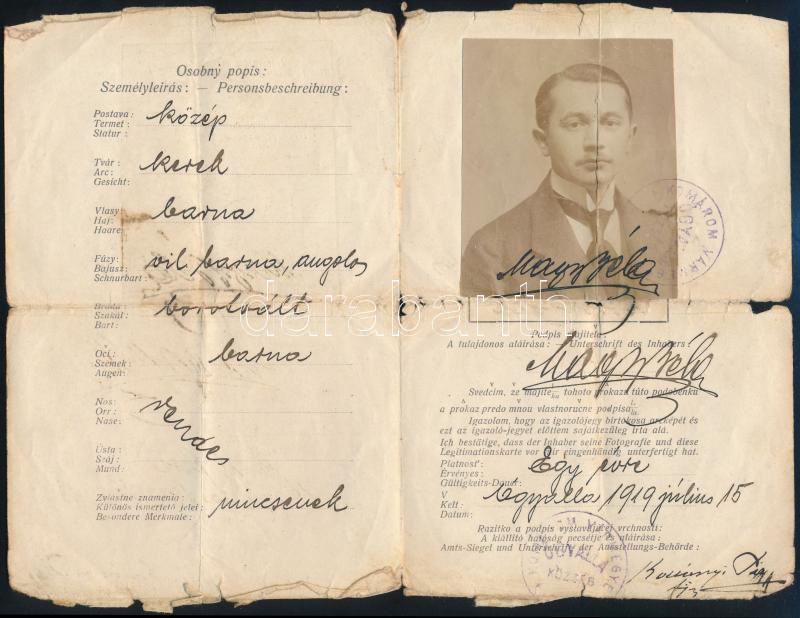 Osobný popis:
Személyleirás: — Personsbeschreibung:
Postava:
Termet:
Statur:
közép
Tvár:
Arc:
Gesicht:
kerek
Vlasy:
Haj:
Haare:
barna
Fúzy:
Bajusz:
Schnurbart:
vil barna, angolos
Brada:
Szakál:
Bart:
borotvált
Oči:
Szemek:
Augen:
barna
Nos:
Orr:
Nase:
rendes
Ústa:
Száj:
Mund:
Zvlástne znamenia:
Különös ismertető jelei:
Besondere Merkmale:
nincsenek
KOMÁROM VÁRM
Magy Béla
darabanth
Podpis majitela:
A tulajdonos aláirása: — Unterschrift des Inhabers:
Magy Béla
Svedčim, že majitel tohoto prokazu túto podobenku
a prokaz predo mnou vlastnorucne podpísal
Igazolom, hogy az igazolójegy birtokosa arcképét és
ezt az igazoló-jegyet előttem sajátkezűleg irta alá.
Ich bestätige, dass der Inhaber seine Fotografie und diese
Legitimationskarte vor mir eingenhändig unterfertigt hat.
Platnosť:
Érvényes:
Gültigkeits-Dauer:
Egy évre
V
Kelt:
Datum:
Ógyalla 1919 július 15
Razitko a podpis vystavujúcej vrchnosti:
A kiállitó hatóság pecsétje és aláirása:
Amts-Siegel und Unterschrift der Ausstellungs-Behörde:
KOMÁROM VÁRMEGYE
ÓGYALLA
KÖZSÉG